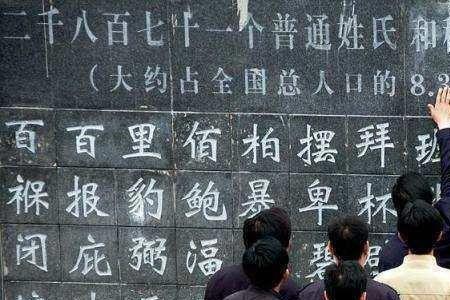 二千八百七十一个普通姓氏和
（大约占全国总人口的8.3
百 百 里 佰 柏 摆 拜 班
褓 报 豹 鲍 暴 卑 杯
闭 庇 弼 湢 碧